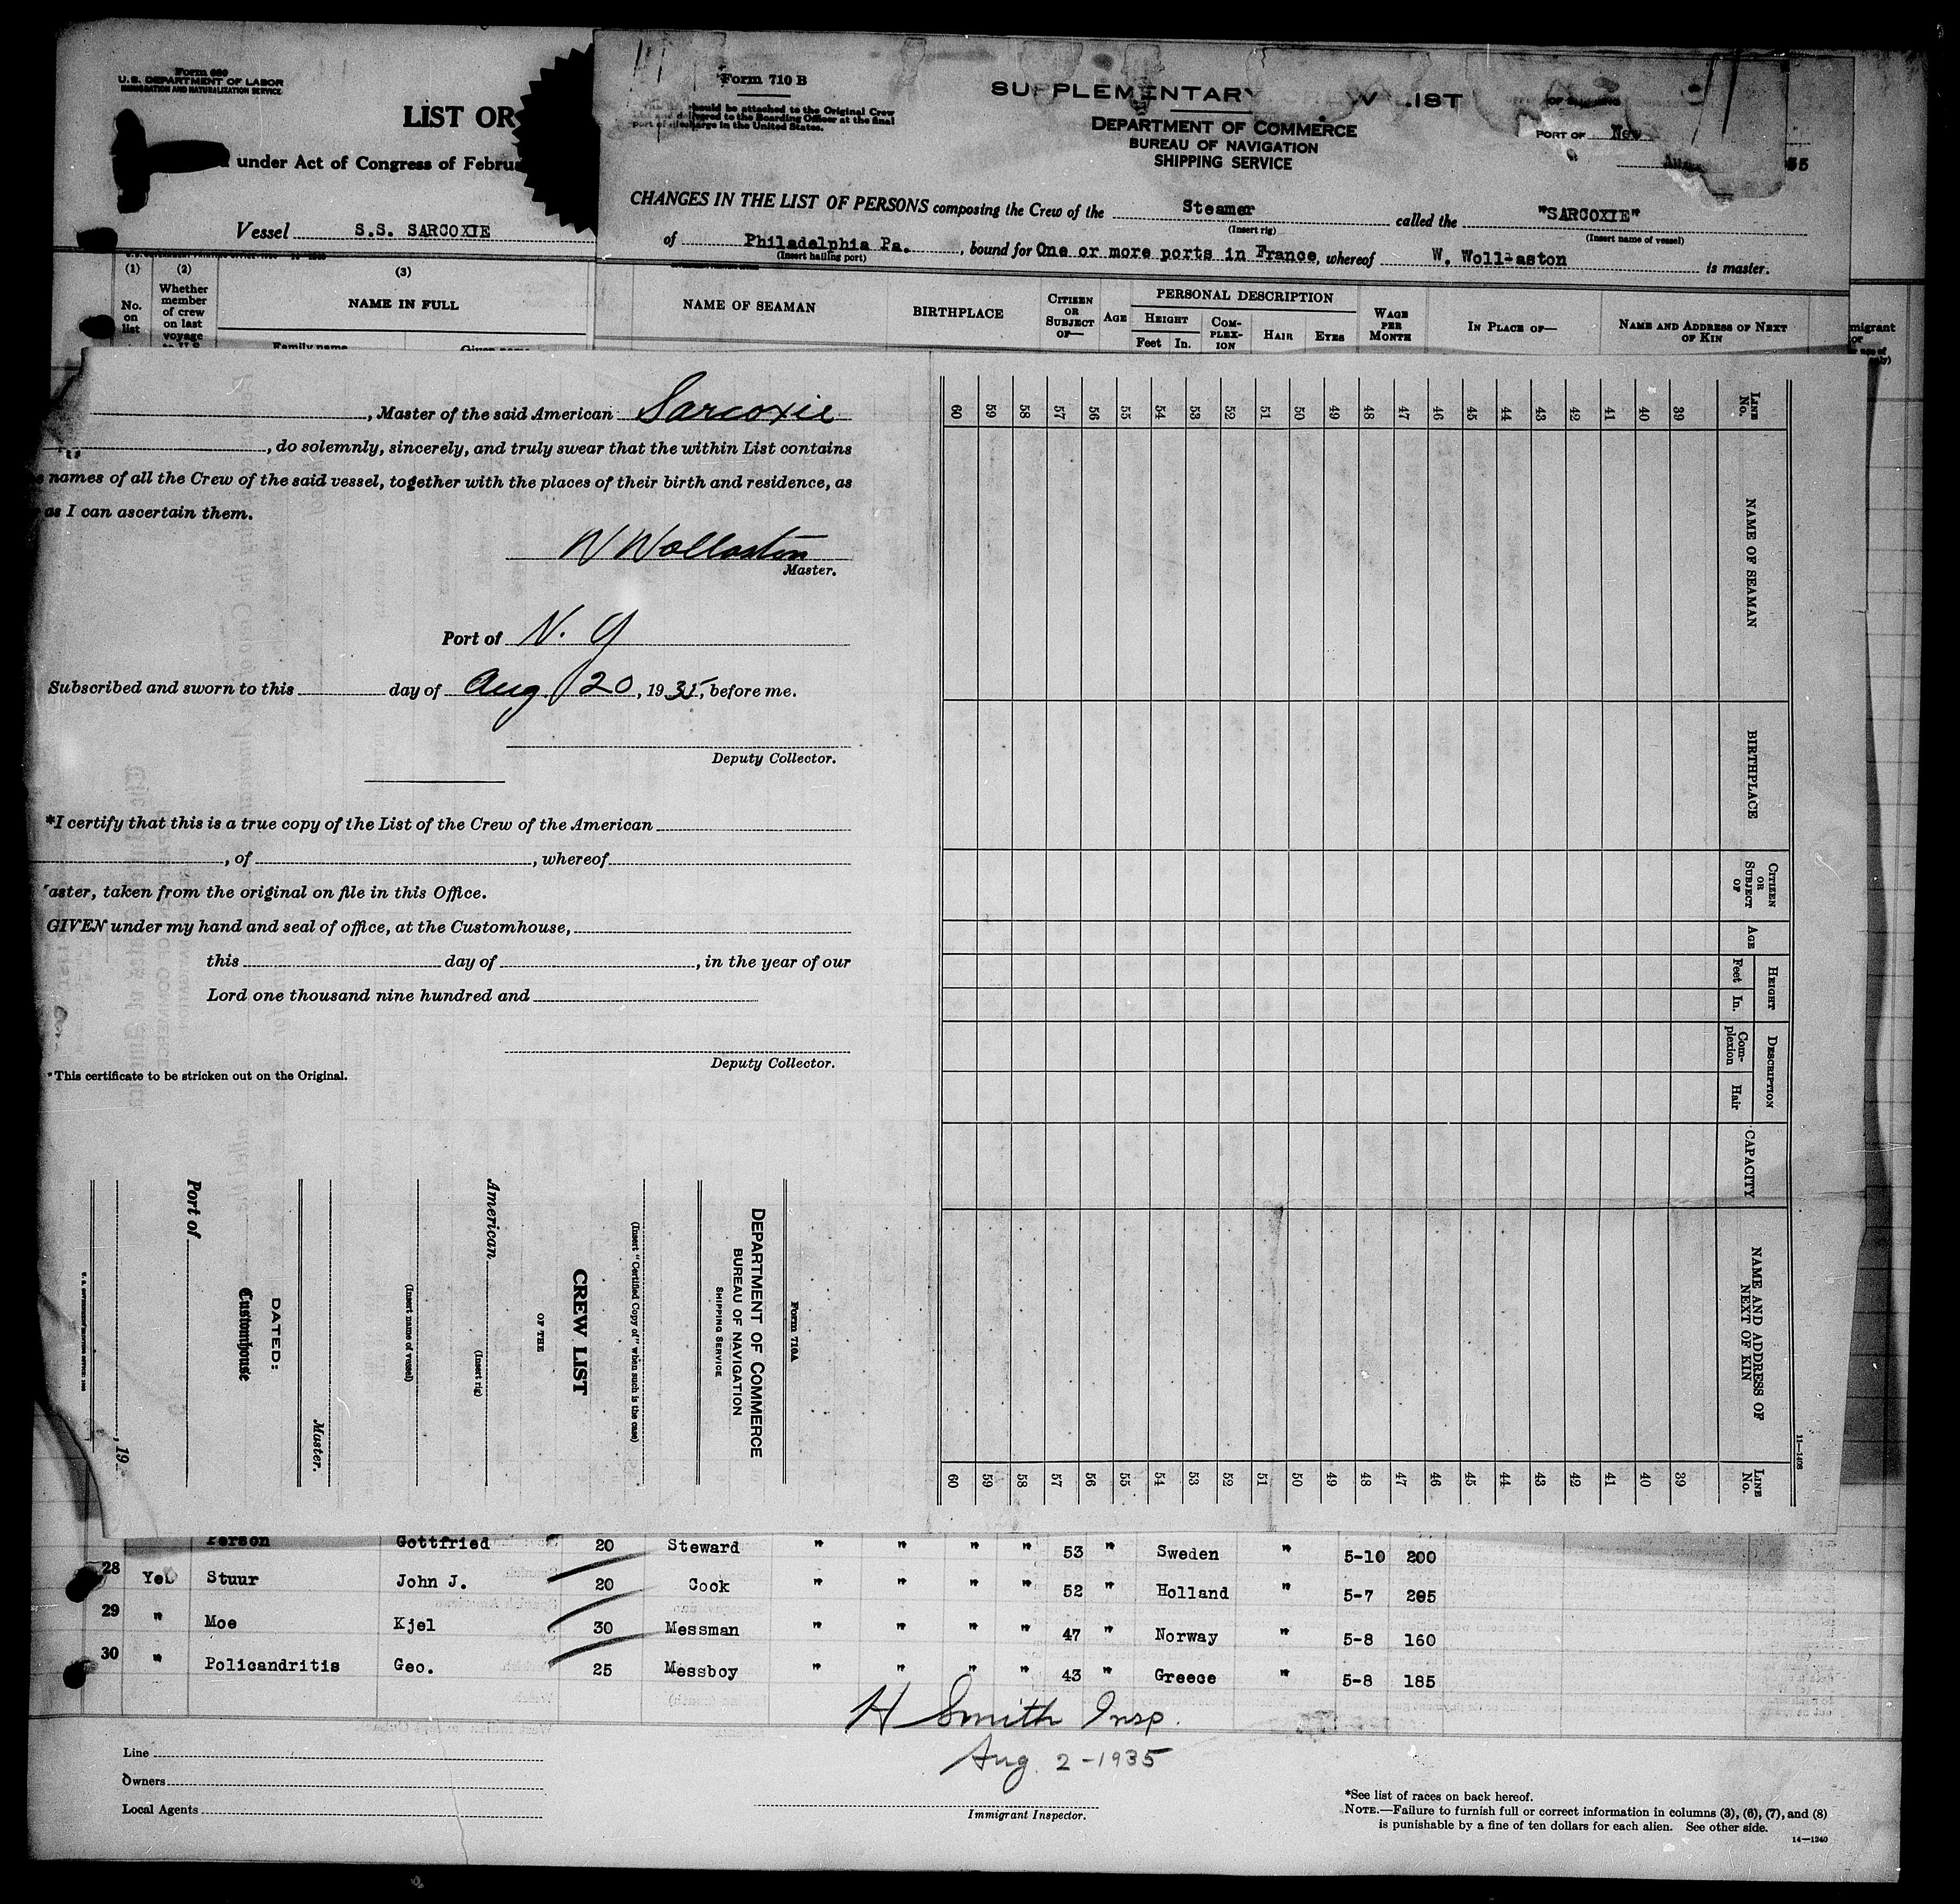 Form 680
U.S. DEPARTMENT OF LABOR
IMMIGRATION AND NATURALIZATION SERVICE
LIST OR
under Act of Congress of Februa
Vessel S.S. SARCOXIE
(1)
No. on list
(2)
Whether member of crew on last voyage
(3)
NAME IN FULL
Family name
Given name
Form 710 B
should be attached to the Original Crew
and delivered to the Boarding Officer at the final
port of discharge in the United States.
SUPPLEMENTARY CREW LIST
DEPARTMENT OF COMMERCE
BUREAU OF NAVIGATION
SHIPPING SERVICE
PORT OF New
35
CHANGES IN THE LIST OF PERSONS composing the Crew of the Steamer called the "SARCOXIE"
(Insert rig)
(Insert name of vessel)
of Philadelphia Pa., bound for One or more ports in France, whereof W. Woll-aston is master.
(Insert hailing port)
NAME OF SEAMAN
BIRTHPLACE
CITIZEN OR SUBJECT OF—
AGE
PERSONAL DESCRIPTION
HEIGHT
Feet
In.
COM-PLEX-ION
HAIR
EYES
WAGE PER MONTH
IN PLACE OF—
NAME AND ADDRESS OF NEXT OF KIN
migrant
or
only)
, Master of the said American Sarcoxie
, do solemnly, sincerely, and truly swear that the within List contains
names of all the Crew of the said vessel, together with the places of their birth and residence, as
as I can ascertain them.
W Wollaston
Master.
Port of N. Y
Subscribed and sworn to this day of Aug 20, 1935, before me.
Deputy Collector.
*I certify that this is a true copy of the List of the Crew of the American
, of , whereof
aster, taken from the original on file in this Office.
GIVEN under my hand and seal of office, at the Customhouse,
this day of , in the year of our
Lord one thousand nine hundred and
Deputy Collector.
*This certificate to be stricken out on the Original.
Form 710A
DEPARTMENT OF COMMERCE
BUREAU OF NAVIGATION
SHIPPING SERVICE
(Insert "Certified Copy of" when such is the case)
CREW LIST
OF THE
American
(Insert rig)
(Insert name of vessel)
Master.
DATED:
Customhouse
Port of
, 19
LINE No.
NAME OF SEAMAN
BIRTHPLACE
CITIZEN OR SUBJECT OF
AGE
HEIGHT
Feet
In.
DESCRIPTION
Com-plexion
Hair
CAPACITY
NAME AND ADDRESS OF NEXT OF KIN
LINE No.
11—1408
60 59 58 57 56 55 54 53 52 51 50 49 48 47 46 45 44 43 42 41 40 39
60 59 58 57 56 55 54 53 52 51 50 49 48 47 46 45 44 43 42 41 40 39
Person Gottfried 20 Steward " " " " 53 " Sweden " 5-10 200
28 Yes Stuur John J. 20 Cook " " " " 52 " Holland " 5-7 205
29 " Moe Kjel 30 Messman " " " " 47 " Norway " 5-8 160
30 " Policandritis Geo. 25 Messboy " " " " 43 " Greece " 5-8 185
H Smith Insp.
Aug. 2-1935
Immigrant Inspector.
Line
Owners
Local Agents
*See list of races on back hereof.
NOTE.—Failure to furnish full or correct information in columns (3), (6), (7), and (8)
is punishable by a fine of ten dollars for each alien. See other side.
14—1240